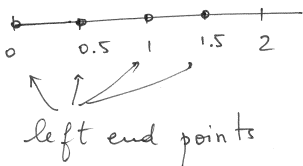 0 0.5 1 1.5 2
left end points